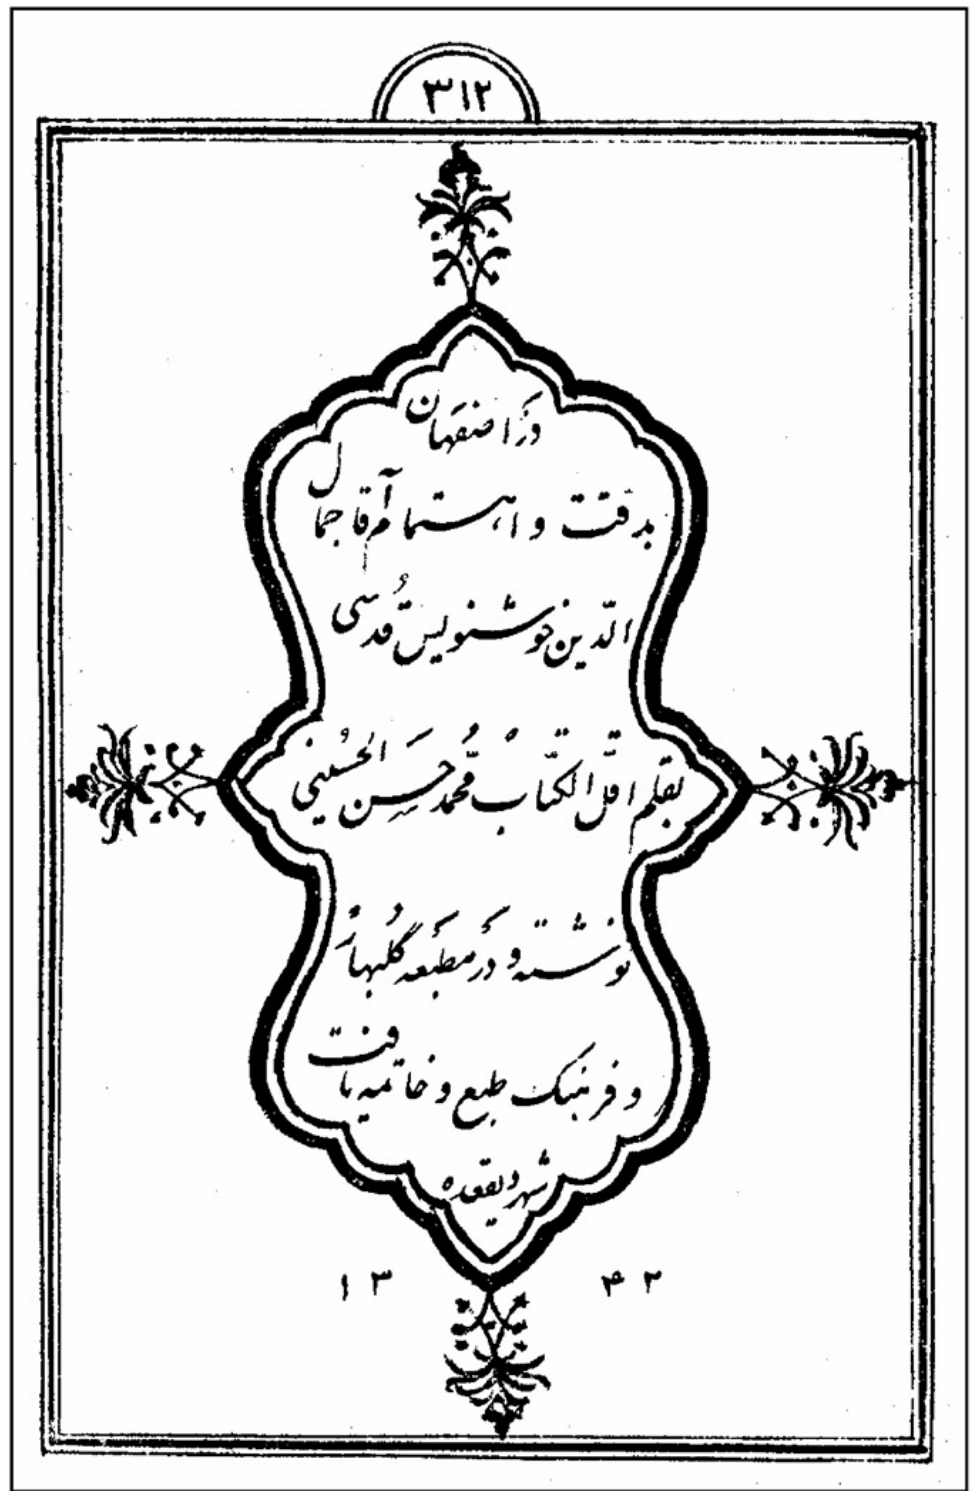 ۳۱۲
در اصفهان
بدقت و اهتمام آقا جمال
الدّین خوشنویس قُدسی
بقلم اقلّ الکتّاب محمّد حسن الحُسینی
نوشته و در مطبعه گلبهار
و فرهنگ طبع و خاتمیه یافت
شهر ذیقعده
۱۳۴۲